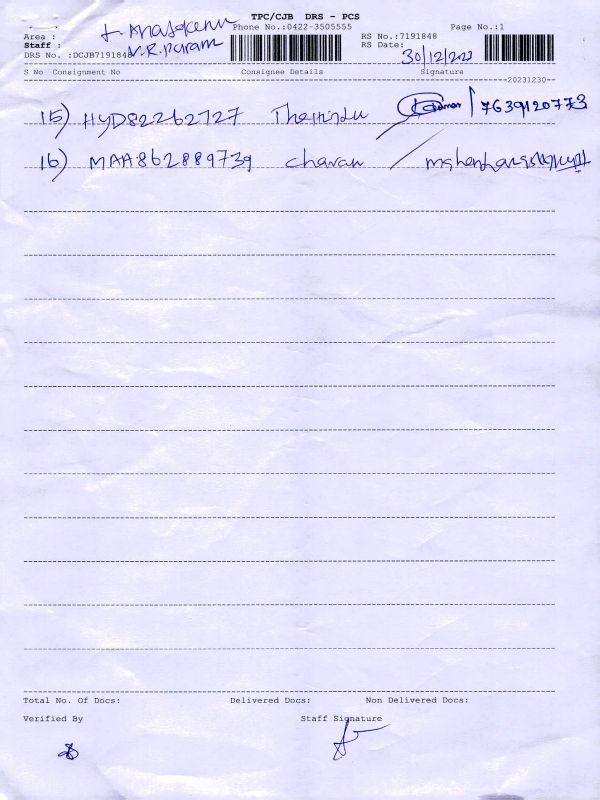 TPC/CJB DRS - PCS
Area :
Phone No.:0422-3505555
Page No.:1
Staff :
N.R. Puram
RS No.:7191848
DRS No. :DCJB7191848
RS Date:
30/12/2023
S No Consignment No Consignee Details Signature
20231230
15) HYD82262727 The Hindu 7639120773
16) MAA862889739 Charan
Total No. Of Docs: Delivered Docs: Non Delivered Docs:
Verified By Staff Signature